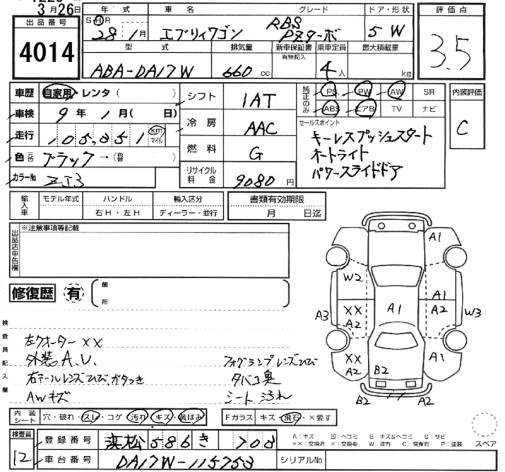 3月26日
出品番号
4014
年式 車名 グレード ドア・形状
SH 28年 1月 エブリィワゴン RBS PZターボ 5W
評価点
3.5
型式 排気量 新車保証書 有無記入 乗車定員 最大積載量
ABA-DA17W 660 cc 4人 kg
車歴 自家用・レンタ( )
シフト 1AT
純正のみ PS PW AW SR
ABS エアB TV ナビ
内装評価
C
車検 9年 1月( 日)
冷房 AAC
セールスポイント
キーレスプッシュスタート
オートライト
パワースライドドア
走行 105,851 km マイル
燃料 G
色 ブラック→
カラーNo. ZJ3
リサイクル料金 9080円
輸入車 モデル年式 ハンドル 輸入区分 書類有効期限
右H・左H ディーラー・並行 月 日迄
出品店申告欄 ※注意事項等記載
修復歴 有 箇所
A1
W2
A1
XX A2
A1
A1 A2
A3
W3
XX A2
A1
B2
B2
A2
検査員記入欄
左クオーター XX
外装 A.U.
右テールレンズひび、ガタつき
AWキズ
フォグランプレンズひび
タバコ臭
シート汚れ
内装シート 穴・破れ・スレ・コゲ・汚れ・キズ・黄ばみ
Fガラス キズ・飛石・×要す
A:キズ U:ヘコミ B:キズ&ヘコミ S:サビ
スペア
検査員 12
登録番号 浜松 586 き 708
車台番号 DA17W-115753
シリアルNo.